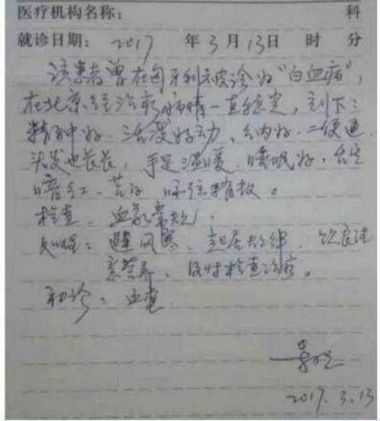 医疗机构名称: 科
就诊日期: 2017 年 3 月 13 日 时 分
该患者曾在匈牙利被诊为“白血病”,
在北京经治疗病情一直稳定,刻下:
精神好、活泼好动、纳好、二便通
头发也长长,手足温暖、睡眠好,舌
暗红、苔 脉弦
检查: 血象常规
处理: 避风寒、起居规律、饮食注
意营养、及时检查治疗。
初诊: 血
2017. 3. 13